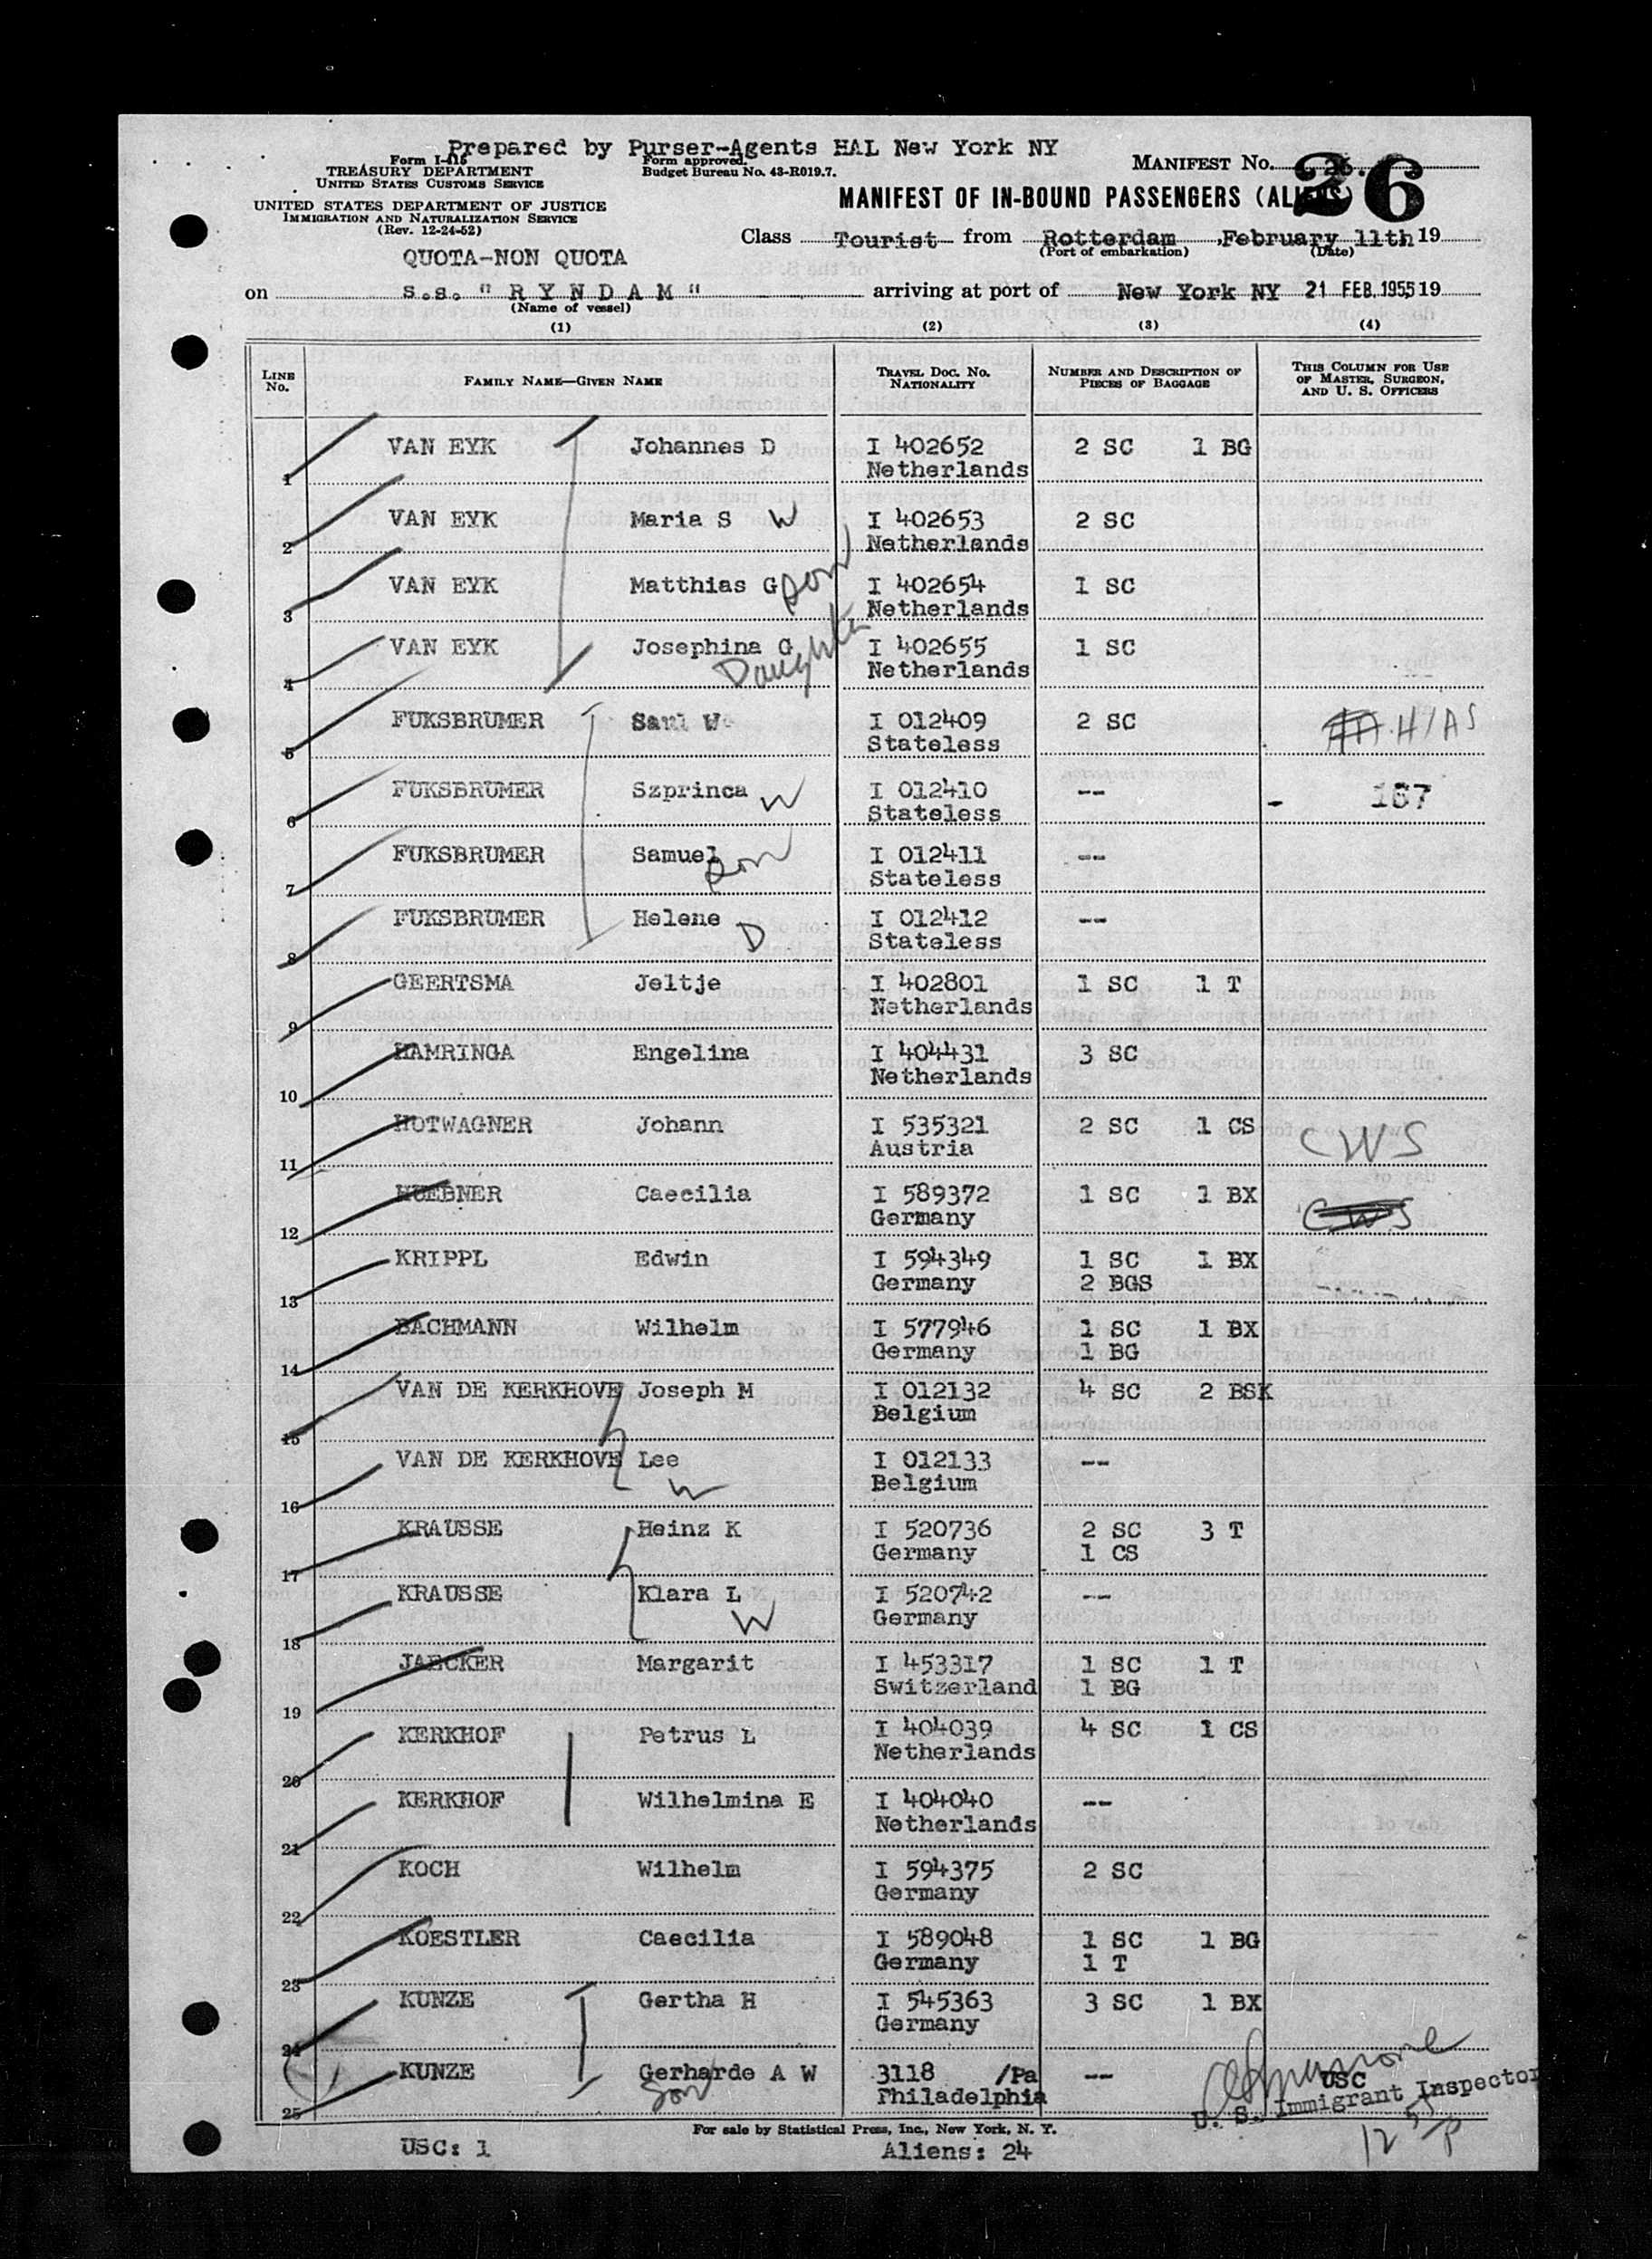 Prepared by Purser-Agents HAL New York NY
Form I-415
TREASURY DEPARTMENT
UNITED STATES CUSTOMS SERVICE
Form approved.
Budget Bureau No. 43-R019.7.
MANIFEST No. 26.
26
UNITED STATES DEPARTMENT OF JUSTICE
IMMIGRATION AND NATURALIZATION SERVICE
(Rev. 12-24-52)
MANIFEST OF IN-BOUND PASSENGERS (ALIENS)
QUOTA-NON QUOTA
Class Tourist from Rotterdam, February 11th 19
(Port of embarkation) (Date)
on s.s. "R Y N D A M" arriving at port of New York NY 21 FEB. 1955 19
(Name of vessel)
(1) (2) (3) (4)
LINE No. FAMILY NAME—GIVEN NAME TRAVEL DOC. No. NATIONALITY NUMBER AND DESCRIPTION OF PIECES OF BAGGAGE THIS COLUMN FOR USE OF MASTER, SURGEON, AND U. S. OFFICERS
1 VAN EYK Johannes D I 402652 2 SC 1 BG
Netherlands
2 VAN EYK Maria S W I 402653 2 SC
Netherlands
3 VAN EYK Matthias G son I 402654 1 SC
Netherlands
4 VAN EYK Josephina G Daughter I 402655 1 SC
Netherlands
5 FUKSBRUMER Saul W I 012409 2 SC HIAS
Stateless
6 FUKSBRUMER Szprinca W I 012410 -- - 167
Stateless
7 FUKSBRUMER Samuel son I 012411 --
Stateless
8 FUKSBRUMER Helene D I 012412 --
Stateless
9 GEERTSMA Jeltje I 402801 1 SC 1 T
Netherlands
10 HAMRINGA Engelina I 404431 3 SC
Netherlands
11 HOTWAGNER Johann I 535321 2 SC 1 CS CWS
Austria
12 HUEBNER Caecilia I 589372 1 SC 1 BX CWS
Germany
13 KRIPPL Edwin I 594349 1 SC 1 BX
Germany 2 BGS
14 BACHMANN Wilhelm I 577946 1 SC 1 BX
Germany 1 BG
15 VAN DE KERKHOVE Joseph M I 012132 4 SC 2 BSK
Belgium
16 VAN DE KERKHOVE Lee W I 012133 --
Belgium
17 KRAUSSE Heinz K I 520736 2 SC 3 T
Germany 1 CS
18 KRAUSSE Klara L W I 520742 --
Germany
19 JAECKER Margarit I 453317 1 SC 1 T
Switzerland 1 BG
20 KERKHOF Petrus L I 404039 4 SC 1 CS
Netherlands
21 KERKHOF Wilhelmina E I 404040 --
Netherlands
22 KOCH Wilhelm I 594375 2 SC
Germany
23 KOESTLER Caecilia I 589048 1 SC 1 BG
Germany 1 T
24 KUNZE Gertha H I 545363 3 SC 1 BX
Germany
25 KUNZE Gerharde A W son 3118 /Pa -- USC
Philadelphia
U. S. Immigrant Inspector
For sale by Statistical Press, Inc., New York, N. Y.
USC: 1 Aliens: 24